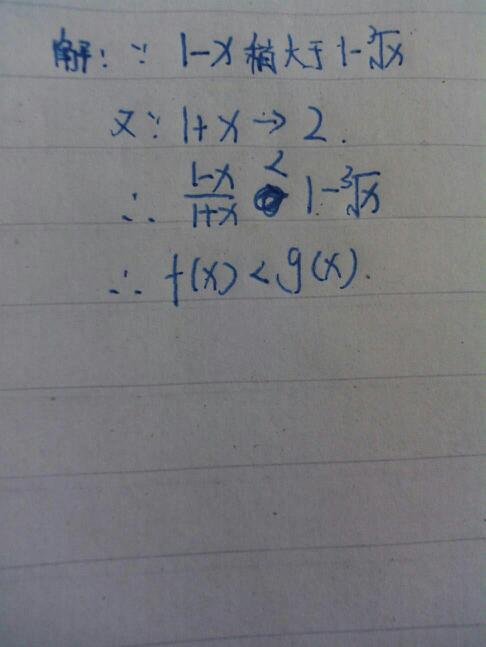 解：∵ 1-x 稍大于 1-∛x
又∵ 1+x → 2.
∴ (1-x)/(1+x) < 1-∛x
∴ f(x) < g(x).